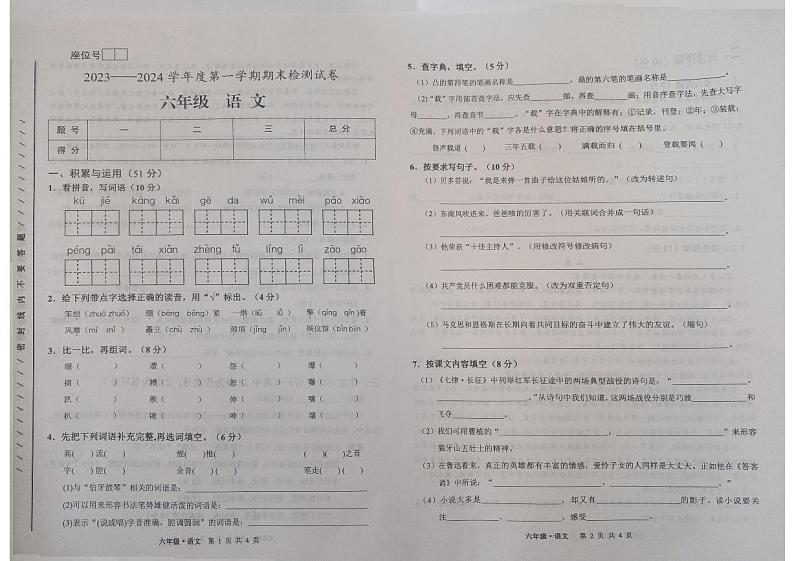 座位号
2023——2024学年度第一学期期末检测试卷
六年级 语文
题号 一 二 三 总分
得分
一、积累与运用(51分)
1. 看拼音,写词语(10分)
kū jié kāng kǎi gē da wǔ mèi páo xiào
péng pài tái xiǎn zhèng fǔ líng lì zāo gāo
2. 给下列带点字选择正确的读音,用“√”标出。(4分)
笨拙(zhuō zhuó) 绷(bēng běng)紧 一绺(liǔ lǜ) 攀(qīng qǐ)着
风靡(mí mǐ) 矗立(chù zhù) 颈项(jǐng jǐn) 殡仪馆(bìn bīn)
3. 比一比,再组词。(8分)
4. 先把下列词语补充完整,再选词填空。(6分)
高( )流( ) 惟( )惟( ) ( )( )之音
字( )腔( ) 余音( )( ) 笔走( )( )
(1)与“伯牙鼓琴”相关的词语是:
(2)可以用来形容书法笔势雄健活泼的词语是:
(3)表示“(说或唱)字音准确,腔调圆润”的词语是:
六年级·语文 第 1 页 共 4 页
5. 查字典,填空。(5分)
(1)凸的第四笔的笔画名称是 ,鼎的第六笔的笔画名称是
(2)“载”字用部首查字法,应先查 部,再查 画;用音序查字法,先查大写字
母 ,再查音节 ,“载”字在字典中的解释有:①记录,刊登;②年;③装载;
④充满。下列词语中的“载”字各是什么意思?将正确的序号填在括号里。
怨声载道( ) 三年五载( ) 满载而归( ) 登载要闻( )
6. 按要求写句子。(10分)
(1)贝多芬说:“我是来弹一首曲子给这位姑娘听的。”(改为转述句)
(2)东南风吹进来,爸爸咳的厉害了。(用关联词合并成一句话)
(3)他荣获“十佳主持人”。(用修改符号修改病句)
(4)共产党员什么困难都能克服。(改为双重否定句)
(5)马克思和恩格斯在长期向着共同目标的奋斗中建立了伟大的友谊。(缩句)
7. 按课文内容填空(8分)
(1)《七律·长征》中列举红军长征途中的两场典型战役的诗句是:“
, 。”从诗句中我们知道,这两场战役分别是巧渡 和
飞夺 。
(2)我们可用曹植的“ , ”来形容
狼牙山五壮士的精神。
(3)在鲁迅看来,真正的英雄都有丰富的情感,爱怜子女的人同样是大丈夫,正如他在《答客
诮》中所说:“ , 。”
(4)小说大多是 ,却又有 的影子,读小说要关
注 、 ,感受 。
六年级·语文 第 2 页 共 4 页
密封线内不要答题